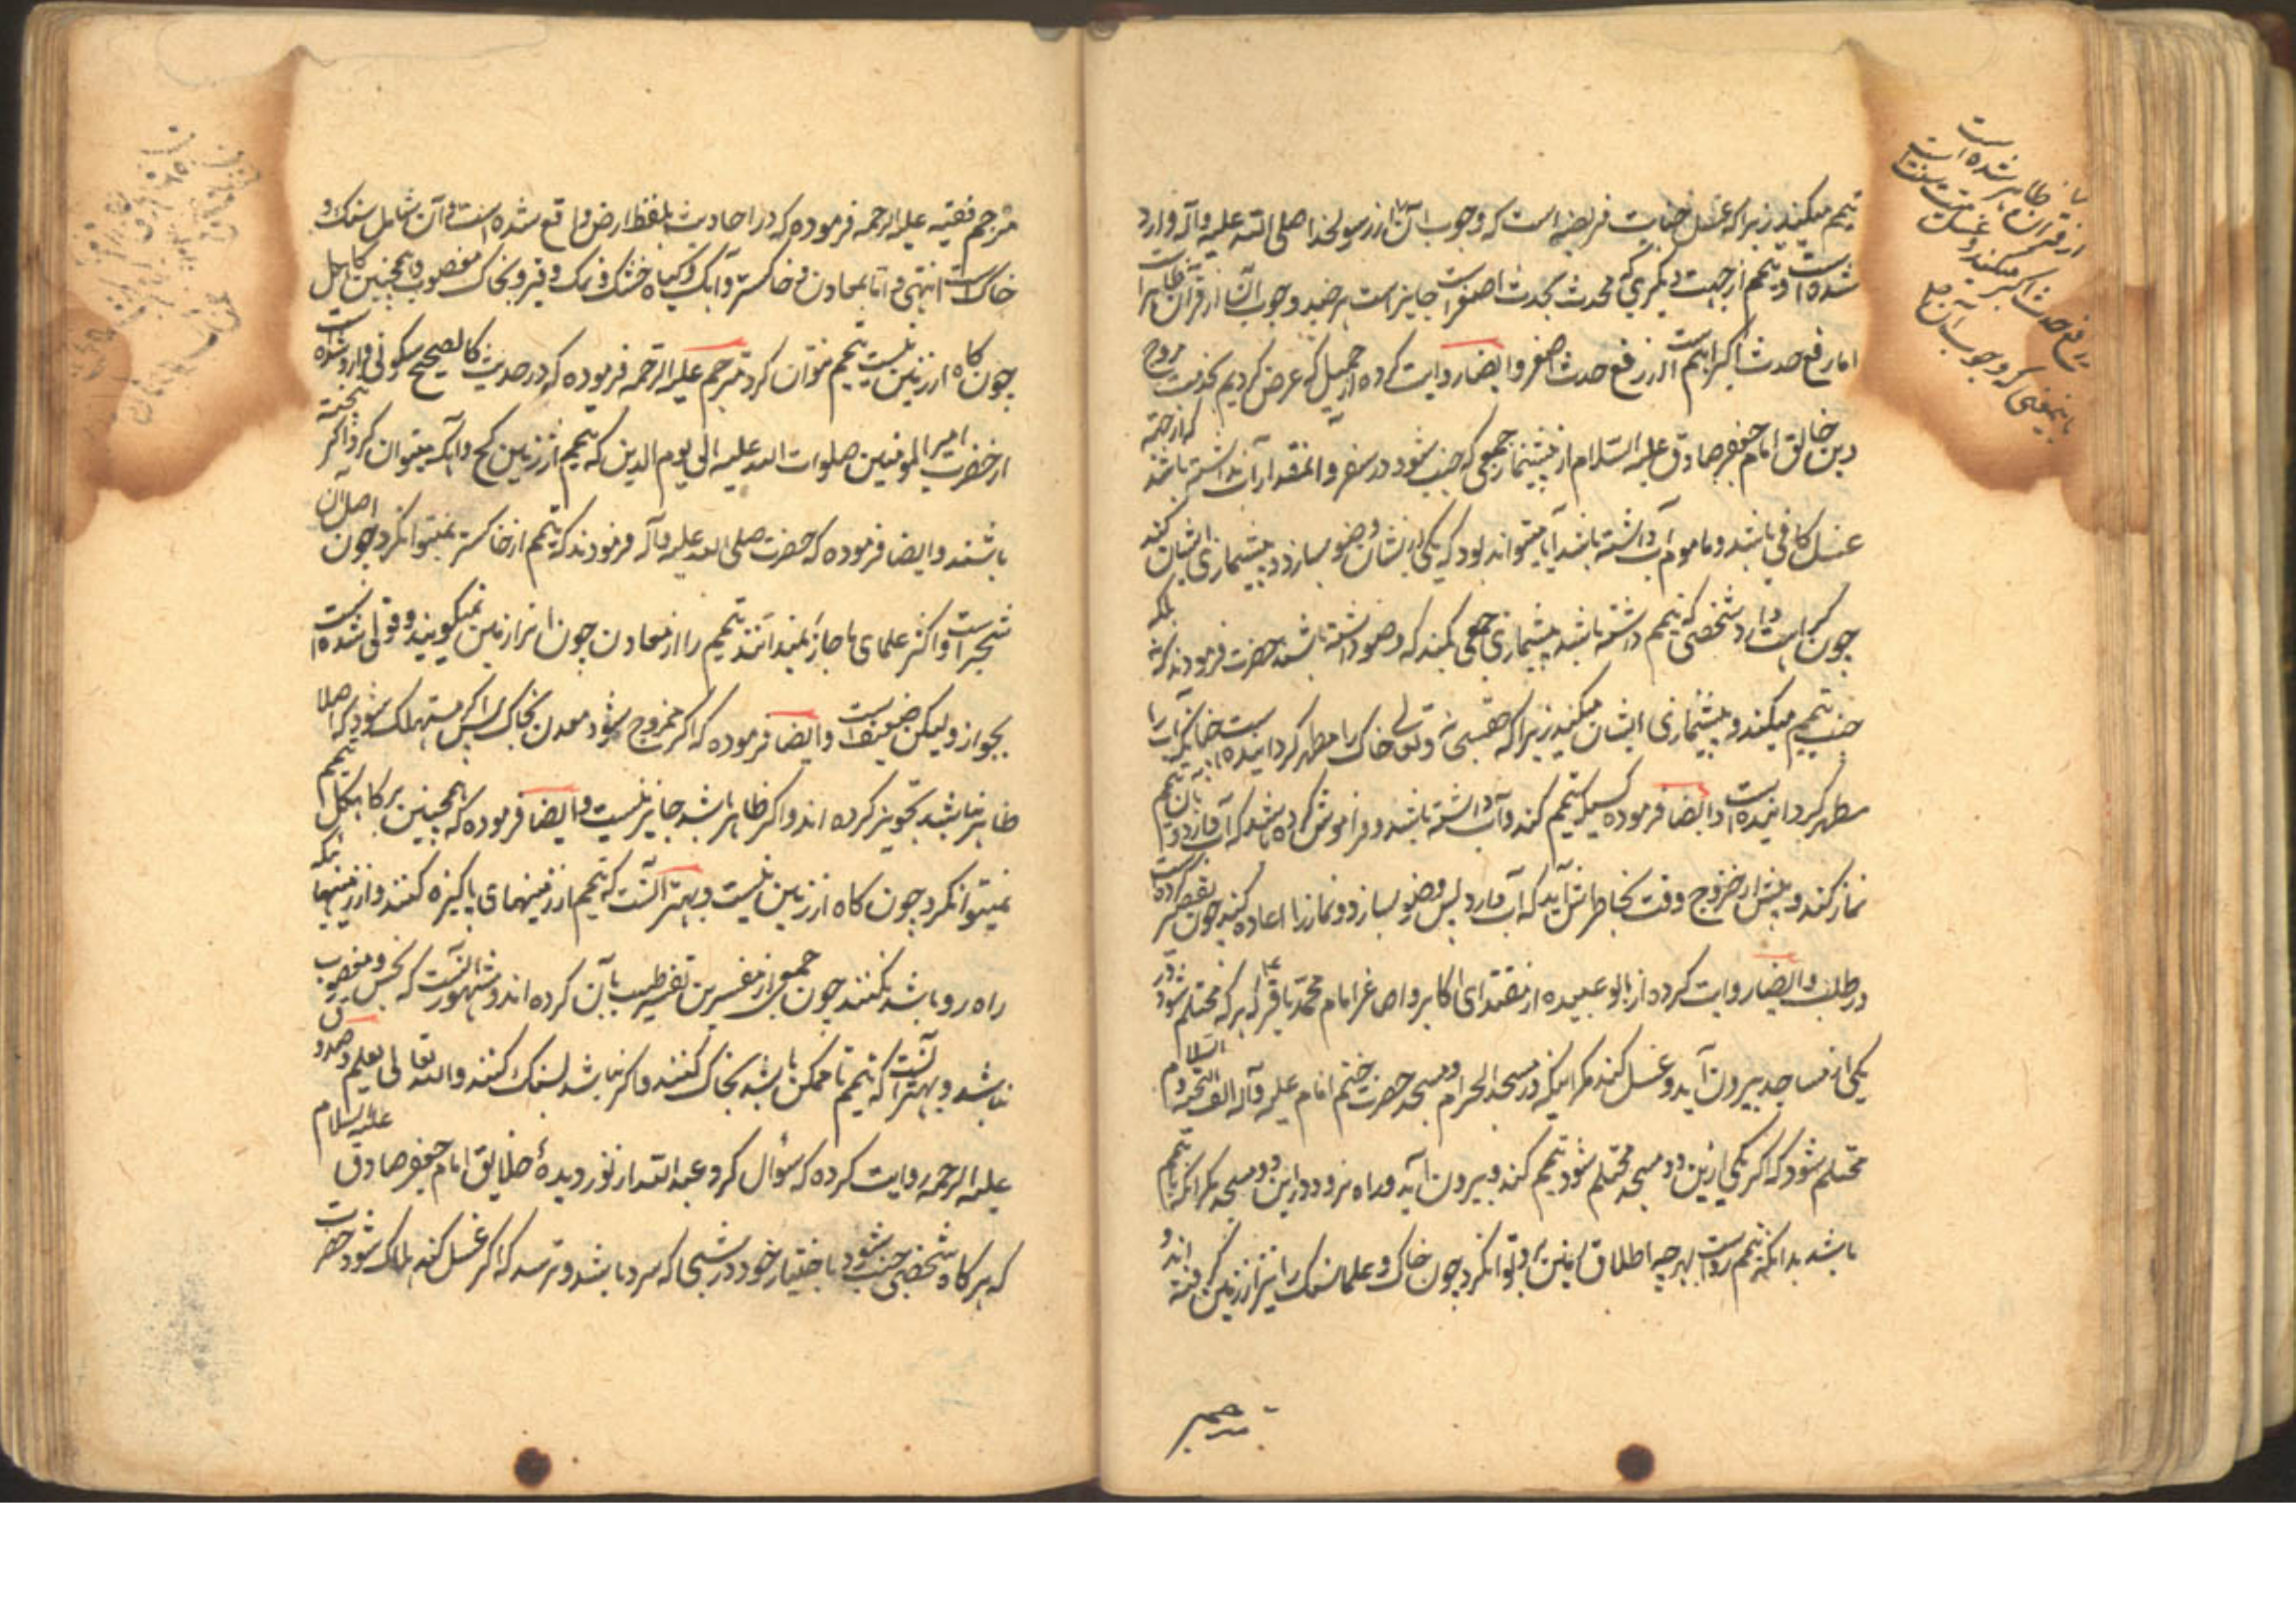 تیمم میکند زیرا که غسل جنابت فریضه است که وجوب آن از رسولخدا صلی الله علیه وآله وارد
شده است و تیمم از جهت دیگری که محدث بحدث اصغر است جایز است هر چند وجوب آن از قرآن ظاهرا است
اما رفع حدث اکبر اهم است از رفع حدث اصغر وایضا روایت کرده از جمیل که عرض کردیم بخدمت مروج
دین خالق امام جعفر صادق علیه السلام از پیشنماز جمعی که جنب شود در سفر و انمقدار آب نداشته باشد که از جهة
غسل کافی باشد و ماموم آب داشته باشد آیا میتواند بود که یکی از ایشان وضو بسازد و پیشنمازی ایشان کند
چون کراهت دارد شخصی که تیمم داشته باشد پیشنمازی جمعی بکند که وضو داشته باشند حضرت فرمودند که نه بلکه
جنب تیمم میکند و پیشنمازی ایشان میکند زیرا که حقسبحانه وتعالی خاک را مطهر کردانیده است چنانکه آب را
مطهر کردانیده است وایضا فرموده کسیکه تیمم کند وآب داشته باشد و فراموش کرده باشد که آب دارد وبان تیمم
نماز کند و پیش از خروج وقت بخاطرش آید که آب دارد پس وضو بسازد و نماز را اعاده کند چون تقصیر کرده است
در طلب وایضا روایت کرده از ابو عبیده از مقتدای اکابر واصاغر امام محمد باقر ع که هر که محتلم شود در
یکی از مساجد بیرون آید و غسل کند مکر اینکه در مسجد الحرام ومسجد حضرت ختم انام علیه وآله الف التحیه والسلام
محتلم شود که اکر یکی ازین دو مسجد محتلم شود تیمم کند وبیرون آید وراه نرود در این دو مسجد مکر آنکه با تیمم
باشد بدانکه تیمم رواست بهرچه اطلاق زمین برو توانکرد چون خاک وعلما سنک را نیز از زمین کرفته اند و
مترجم
از قرآن ظاهر شده است
مترجم فقیه علیه الرحمه فرموده که در احادیث بلفظ ارض واقع شده است وآن شامل سنک و
خاکست انتهی واتا بمعادن وخاکستر وآهک وکیاه خشک ونمک وقیر وبخاک مغصوب وهمچنین کاهکل
چون کاه از زمین نیست تیمم نتوان کرد مترجم علیه الرحمه فرموده که در حدیث کالصحیح سکونی وارد شده است
از حضرت امیر المومنین صلوات الله علیه الی یوم الدین که تیمم از زمین کچ وآهک میتوان کرد واکر پخته
باشند وایضا فرموده که حضرت صلی الله علیه وآله فرمودند که تیمم از خاکستر نمیتوانکرد چون اصل آن
شجر است واکثر علمای ما جائز نمیدانند تیمم را از معادن چون انرا زمین نمیکویند وقولی شده است
بجواز ولیکن ضعیف است وایضا فرموده که اکر ممزوج شود معدن بخاک پس اکر مستهلک شود که اصلا
ظاهر نباشد تجویز کرده اند واکر ظاهر باشد جایز نیست وایضا فرموده که همچنین بر کاهکل تیمم
نمیتوانکرد چون کاه از زمین نیست وبهتر آنست که تیمم از زمینهای پاکیزه کنند واز زمینهائیکه
راه رو باشد نکنند چون جمعی از مفسرین تفسیر طیب بآن کرده اند ومشهور آنست که نجس ومغصوب
نباشد وبهتر آنست که تیمم تا ممکن باشد بخاک کنند واکر نباشد بسنک کنند والله تعالی یعلم وصدوق
علیه الرحمه روایت کرده که سؤال کرد عبد الله از نور دیدۀ خلایق امام جعفر صادق علیه السلام
که هر کاه شخصی جنب شود باختیار خود در شبی که سرد باشد وترسد که اکر غسل کند هلاک شود حضرت